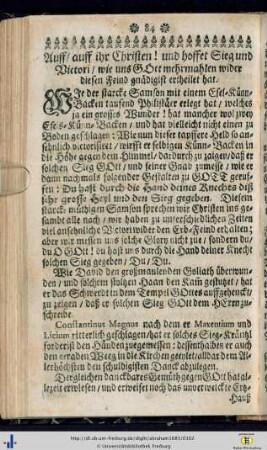 84
Auff / auff ihr Christen! und hoffet Sieg und
Victori / wie uns GOtt mehrmahlen wider
diesen Feind gnädigist ertheilet hat.
WIe der starcke Samson mit einem Esel-Künn-
Backen tausend Philistäer erlegt hat / welches
ja ein grosses Wunder! hat mancher wol zwey
Esels-Künn-Backen / und hat vielleicht nicht einen zu
Boden geschlagen: Wie nun dieser tapffere Held so an-
sehnlich victorisiret / wirfft er selbigen Künn-Backen in
die Höhe gegen dem Himmel / dardurch zu zeigen / daß er
solchen Sieg GOtt / und seiner Gnad zumesse / wie er
dann nachmals folgender Gestalten zu GOTT geruf-
fen: Du hast durch die Hand deines Knechts diß
sehr grosse Heyl und den Sieg gegeben. Diesem
starck-müthigen Samson sprechen wir Christen ins ge-
sambt alle nach / wir haben zu unterschiedlichen Zeiten
viel ansehnliche Victori wider den Erb-Feind erhalten;
aber wir messen uns solche Glory nicht zu / sondern du /
du O GOtt! du hast uns durch die Hand deiner Knecht
solchen Sieg gegeben / Du / Du.
Wie David den großmaulenden Goliath überwun-
den / und solchem stolzen Haan den Kam gestutzt / hat
er das Schwerdt in dem Tempel GOttes auffgehenckt /
zu zeigen / daß er solchen Sieg GOtt dem HErrn zu-
schreibe.
Constantinus Magnus nach dem er Maxentium und
Licinium ritterlich geschlagen / hat er solches Sieg-Kräntzl
forderist den Händen zugemessen: dessenthalben er also
den geraden Weeg in die Kirchen geeylet / alldar dem Al-
lerhöchsten den schuldigisten Danck abzulegen.
Dergleichen danckbares Gemüth gegen GOtt hat al-
lezeit erwiesen / und erweiset noch das unverwelckte Ertz-
Hauß
http://dl.ub.uni-freiburg.de/diglit/abraham1683/0102
© Universitätsbibliothek Freiburg